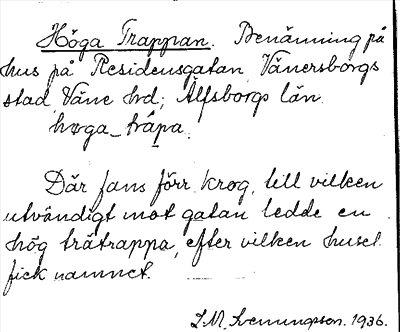 Höga Trappan. Benämning på
hus på Residensgatan, Vänersborgs
stad, Väne hd; Älfsborgs län.
høga_tråpa.
Där fans förr krog, till vilken
utvändigt mot gatan ledde en
hög trätrappa, efter vilken huset
fick namnet.
L.M. Svenungsson. 1936.